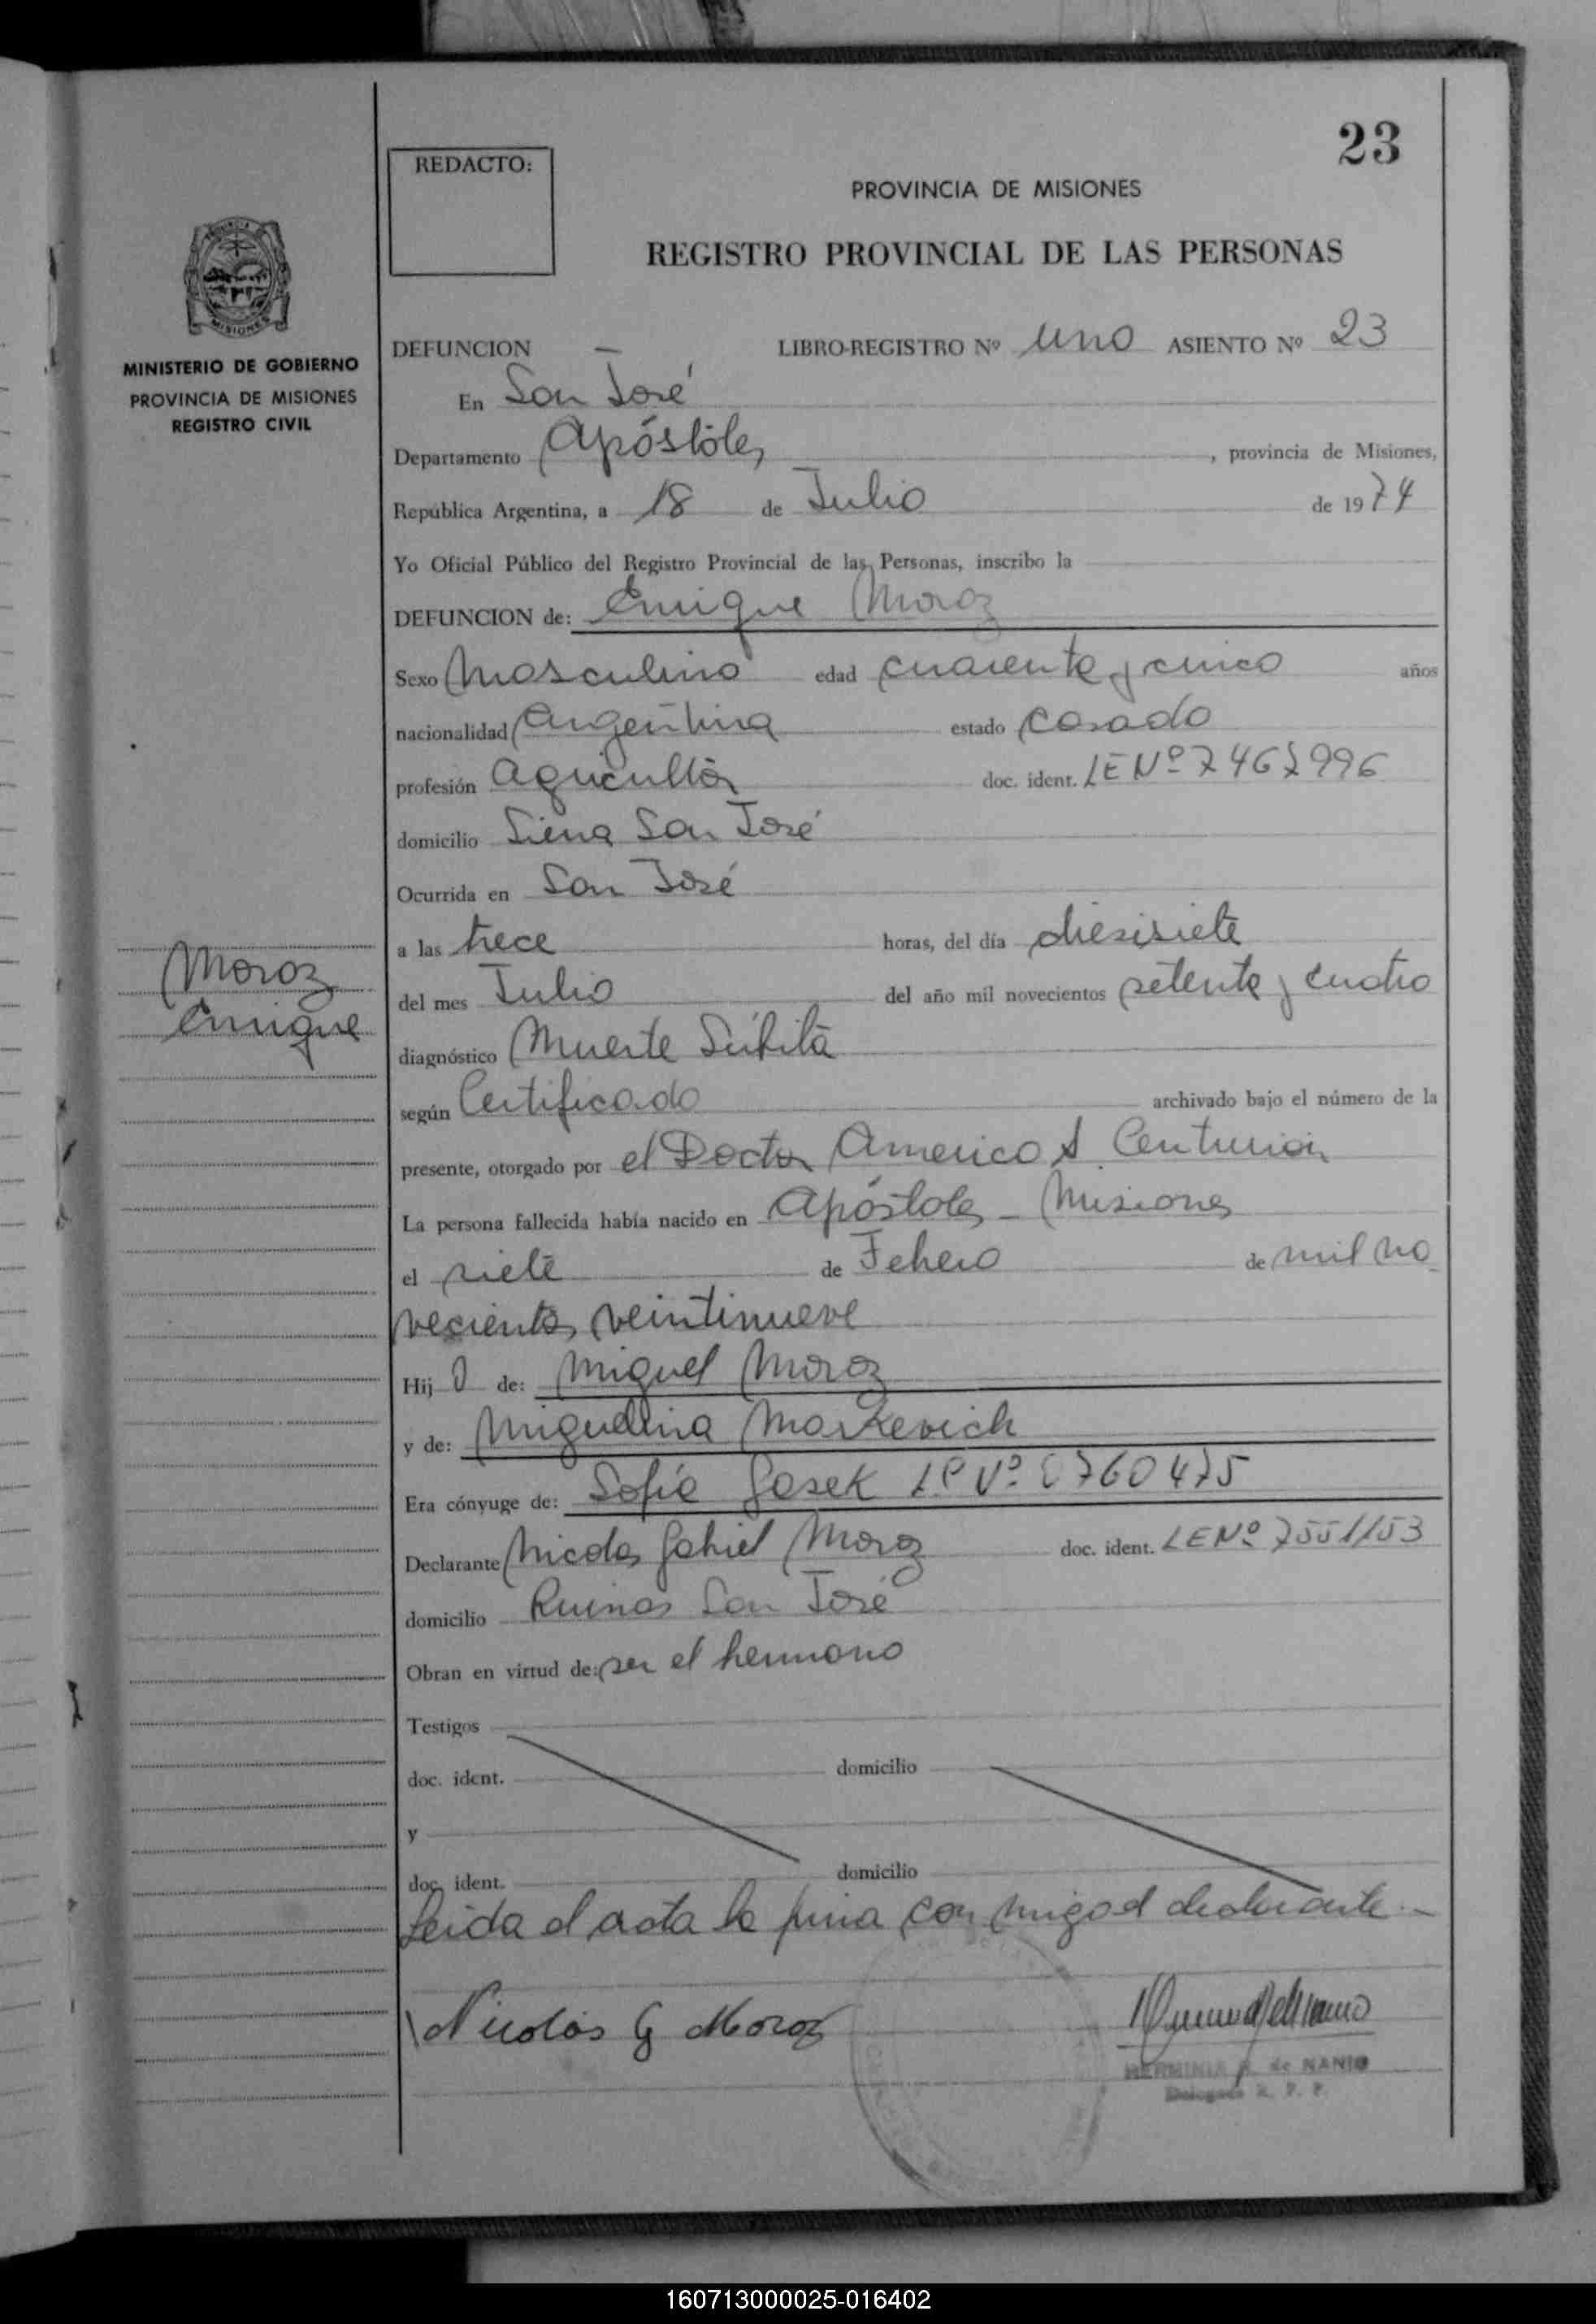 23
REDACTO:
PROVINCIA DE MISIONES
REGISTRO PROVINCIAL DE LAS PERSONAS
MISIONES
MINISTERIO DE GOBIERNO
PROVINCIA DE MISIONES
REGISTRO CIVIL
DEFUNCION — LIBRO-REGISTRO Nº uno ASIENTO Nº 23
En San José
Departamento Apóstoles, provincia de Misiones,
República Argentina, a 18 de Julio de 1974
Yo Oficial Público del Registro Provincial de las Personas, inscribo la
DEFUNCION de: Enrique Moroz
Sexo Masculino edad cuarenta y cinco años
nacionalidad Argentina estado Casado
profesión Agricultor doc. ident. LE Nº
domicilio Sierra San José
Ocurrida en San José
a las trece horas, del día diesisiete
Moroz
Enrique
del mes Julio del año mil novecientos setenta y cuatro
diagnóstico Muerte Súbita
según Certificado archivado bajo el número de la
presente, otorgado por el Doctor Americo S. Centurión
La persona fallecida había nacido en Apóstoles - Misiones
el siete de Febrero de mil no
vecientos veintinueve
Hij o de: Miguel Moroz
y de: Miguelina Markevich
Era cónyuge de: Sofía
Declarante Nicolas Gabriel Moroz doc. ident. LE Nº 7551153
domicilio Ruinas San José
Obran en virtud de: ser el hermano
Testigos
doc. ident. domicilio
y
doc. ident. domicilio
Leida el acta la firma conmigo el declarante.-
Nicolás G Moroz
HERMINIA de NANIO
Delegada R. P. P.
160713000025-016402